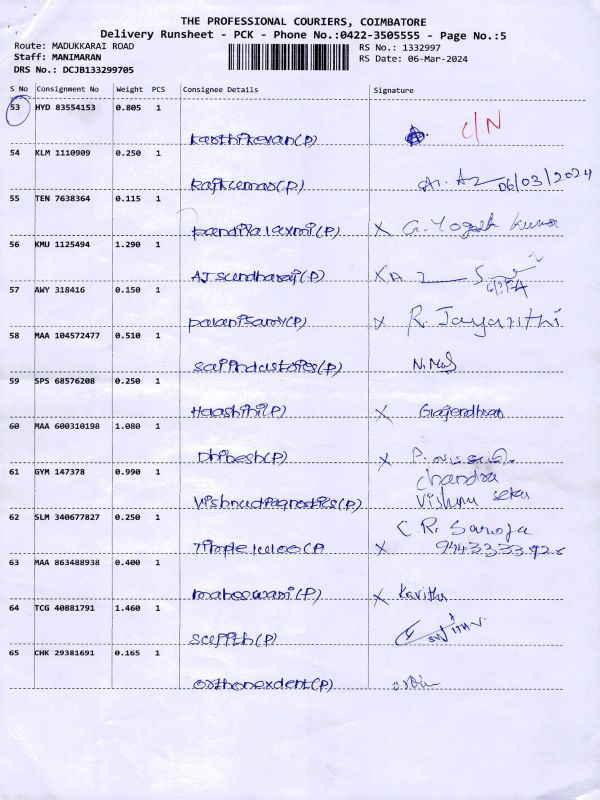 THE PROFESSIONAL COURIERS, COIMBATORE
Delivery Runsheet - PCK - Phone No.:0422-3505555 - Page No.:5
Route: MADUKKARAI ROAD RS No.: 1332997
Staff: MANIMARAN RS Date: 06-Mar-2024
DRS No.: DCJB133299705
S No Consignment No Weight PCS Consignee Details Signature
53 HYD 83554153 0.805 1
karthikeyan(P) C/N
54 KLM 1110909 0.250 1
Rajkumar(P) 06/03/2024
55 TEN 7638364 0.115 1
pandilalaxmi(P) X G. Yogesh Kumar
56 KMU 1125494 1.290 1
AJ sundharaj(P) X
57 AWY 318416 0.150 1
palanisamy(P) X R. Jayarithi
58 MAA 104572477 0.510 1
saiindustries(P)
59 SPS 68576208 0.250 1
Haashini(P) X Gajendhran
60 MAA 600310198 1.080 1
Dhibesh(P) X P.
61 GYM 147378 0.990 1 chandra
vishnudiagnostics(P) vishnu sekar
62 SLM 340677827 0.250 1 C.R. Saroja
(P X
63 MAA 863488938 0.400 1
maheswari(P) X Kavitha
64 TCG 40881791 1.460 1
(P)
65 CHK 29381691 0.165 1
orthonexdent(P)